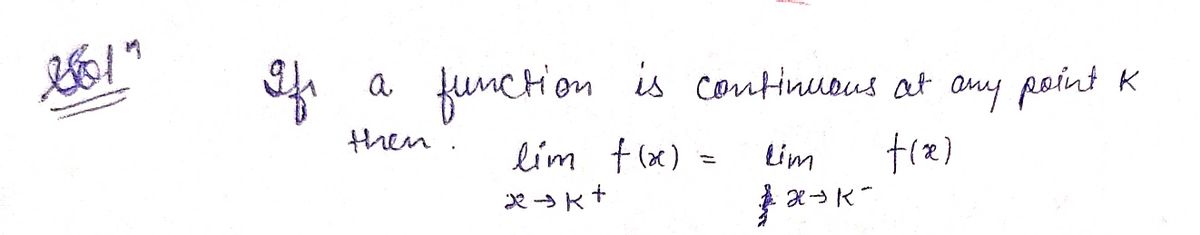 Solⁿ If a function is continuous at any point K
then. lim f(x) = lim f(x)
x→K⁺ x→K⁻